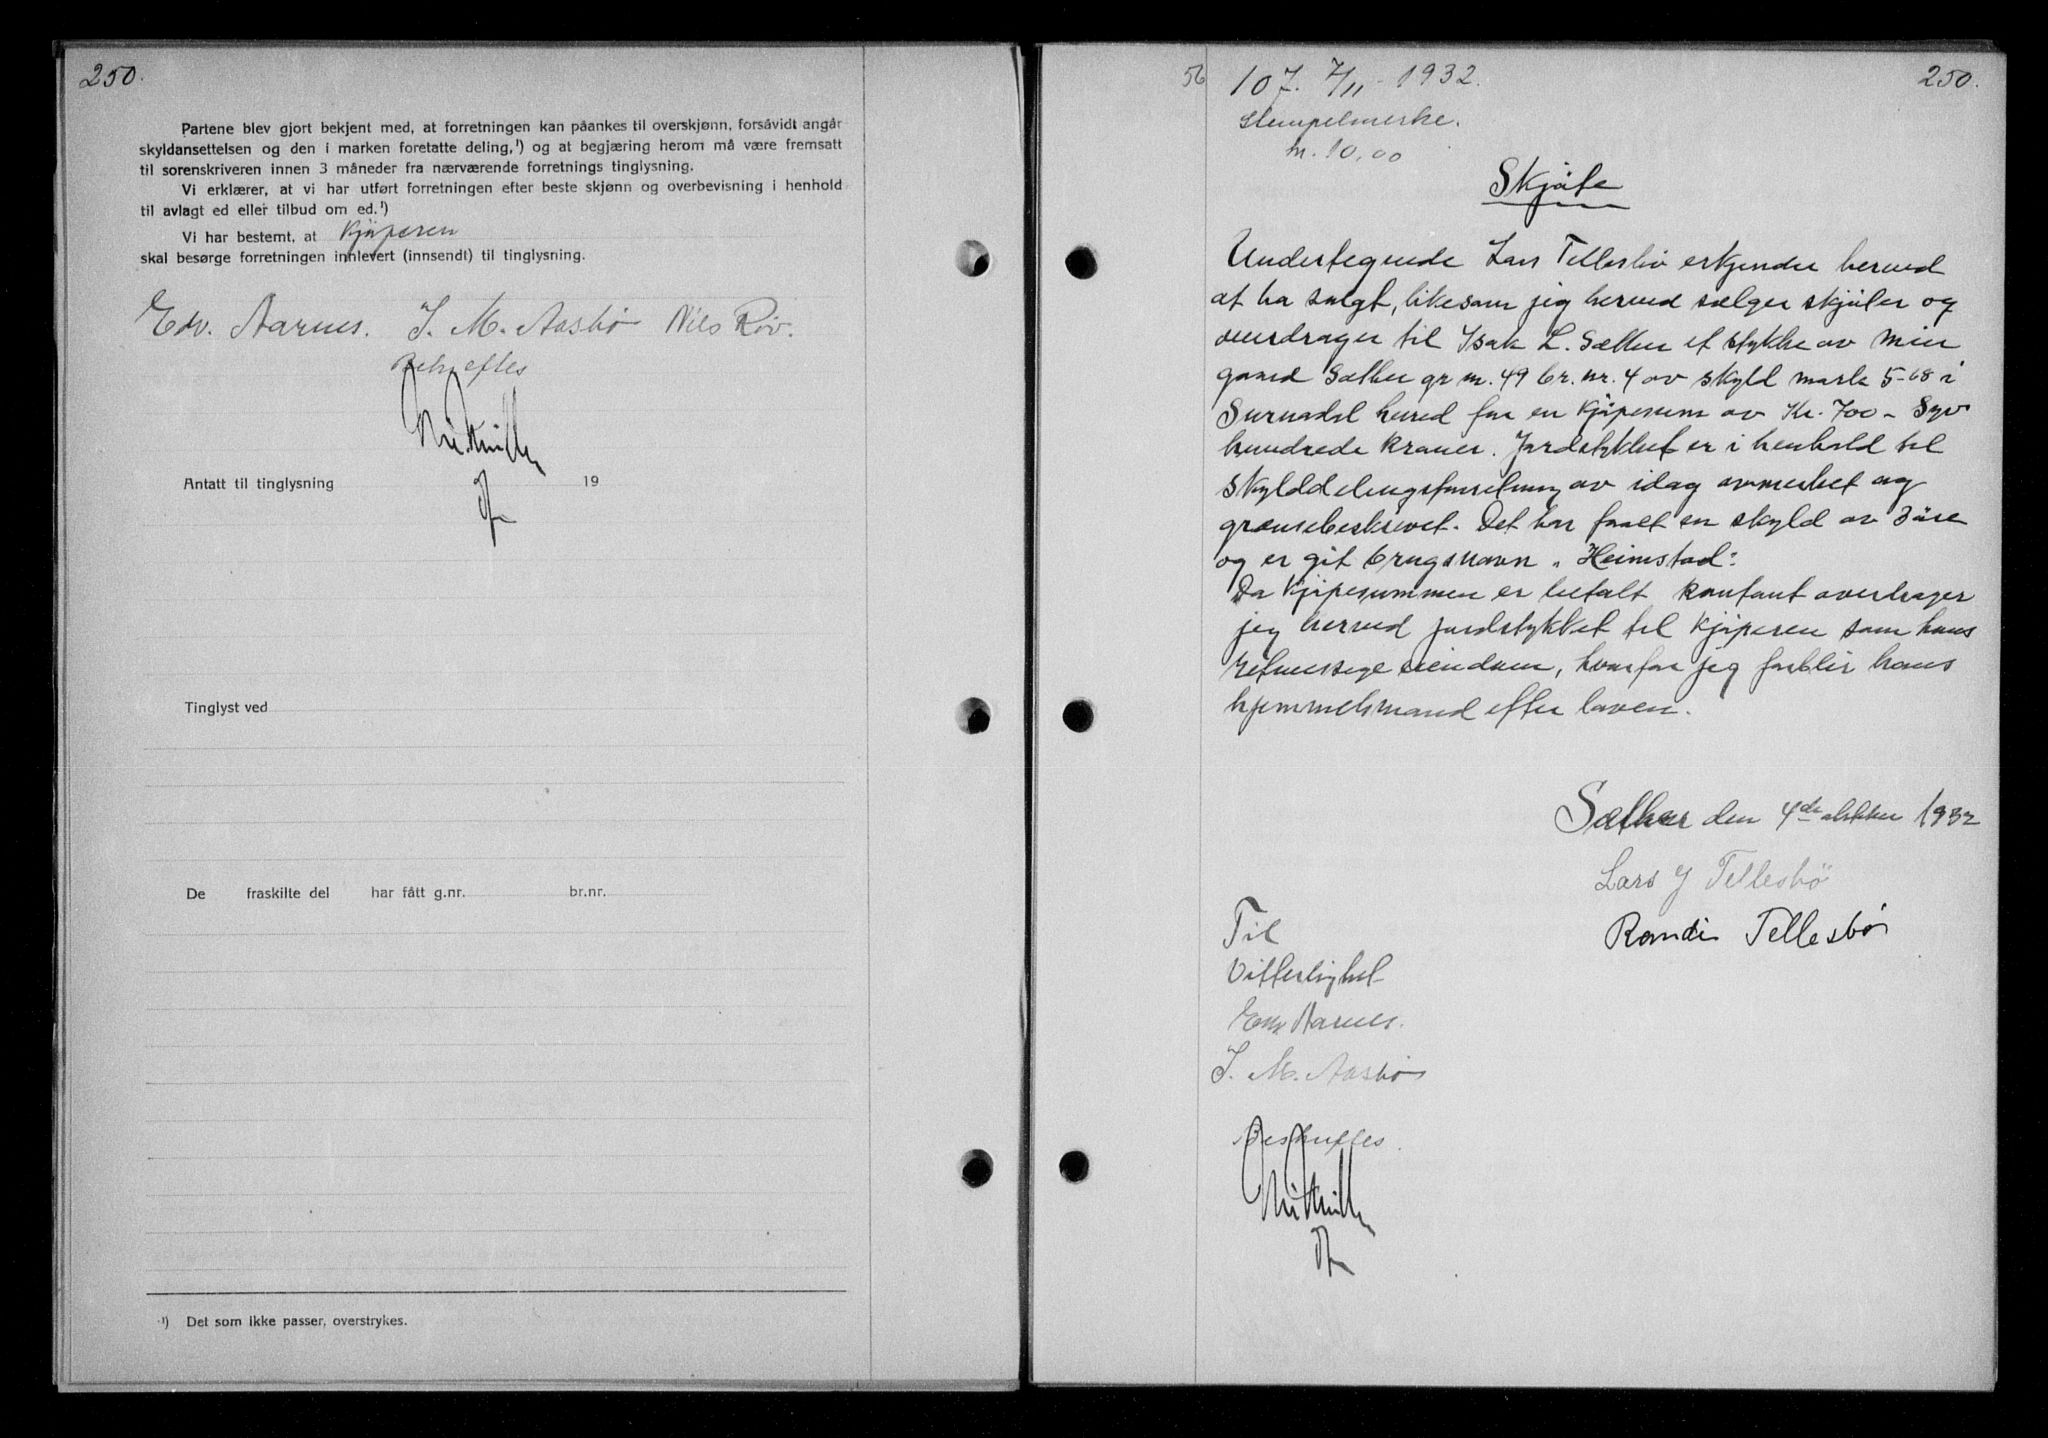 250.
Partene blev gjort bekjent med, at forretningen kan påankes til overskjønn, forsåvidt angår
skyldansettelsen og den i marken foretatte deling,¹) og at begjæring herom må være fremsatt
til sorenskriveren innen 3 måneder fra nærværende forretnings tinglysning.
Vi erklærer, at vi har utført forretningen efter beste skjønn og overbevisning i henhold
til avlagt ed eller tilbud om ed.¹)
Vi har bestemt, at Kjøperen
skal besørge forretningen innlevert (innsendt) til tinglysning.
Edv. Aarnes. J. M. Aasbø Nils Røv.
Bekreftes
Antatt til tinglysning 19
Tinglyst ved
De fraskilte del har fått g.nr. br.nr.
¹) Det som ikke passer, overstrykes.
56 107. 7/11 - 1932. 250.
Stempelmerke.
kr. 10,00
Skjøte
Undertegnede Lars Tellesbø erkjender herved
at ha solgt, likesom jeg herved sælger skjøter og
overdrager til Isak L. Sæther et stykke av min
gaard Sæther gr nr. 49 br. nr. 4 av skyld mark 5-68 i
Surnadal herred for en kjøpesum av Kr. 700 - Syv
hundrede kroner. Jordstykket er i henhold til
skylddelingsforretning av idag avmerket og
grænsebeskrevet. Det har faaet en skyld av 3 øre
og er git brugsnavn "Heimstad".
Da kjøpesummen er betalt kontant overdrager
jeg herved jordstykket til kjøperen som hans
retmessige eiendom, hvorfor jeg forblir hans
hjemmelsmand efter loven.
Sæther den 4de oktober 1932
Lars J Tellesbø
Randi Tellesbø
Til
Vitterlighet
Edv Aarnes.
J. M. Aasbø
Bekreftes.